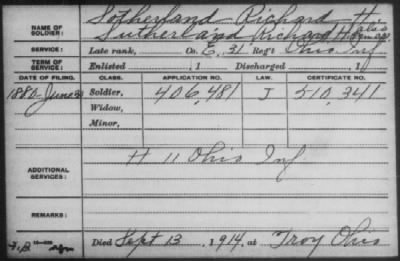 NAME OF SOLDIER: Sotherland Richard H.
Sutherland Richard H. alias
SERVICE: Late rank, Co. E, 31 Reg't Ohio Inf
TERM OF SERVICE: Enlisted , 1 Discharged , 1
DATE OF FILING. CLASS. APPLICATION NO. LAW. CERTIFICATE NO.
1880 June Soldier, 406,481 J 510,341
Widow,
Minor,
ADDITIONAL SERVICES: H 11 Ohio Inf
REMARKS:
Died Sept 13, 1914, at Troy Ohio